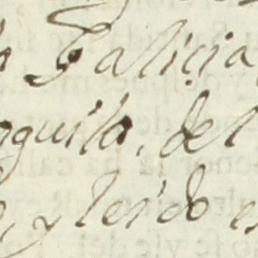 Galicia
nguila, del
y leido